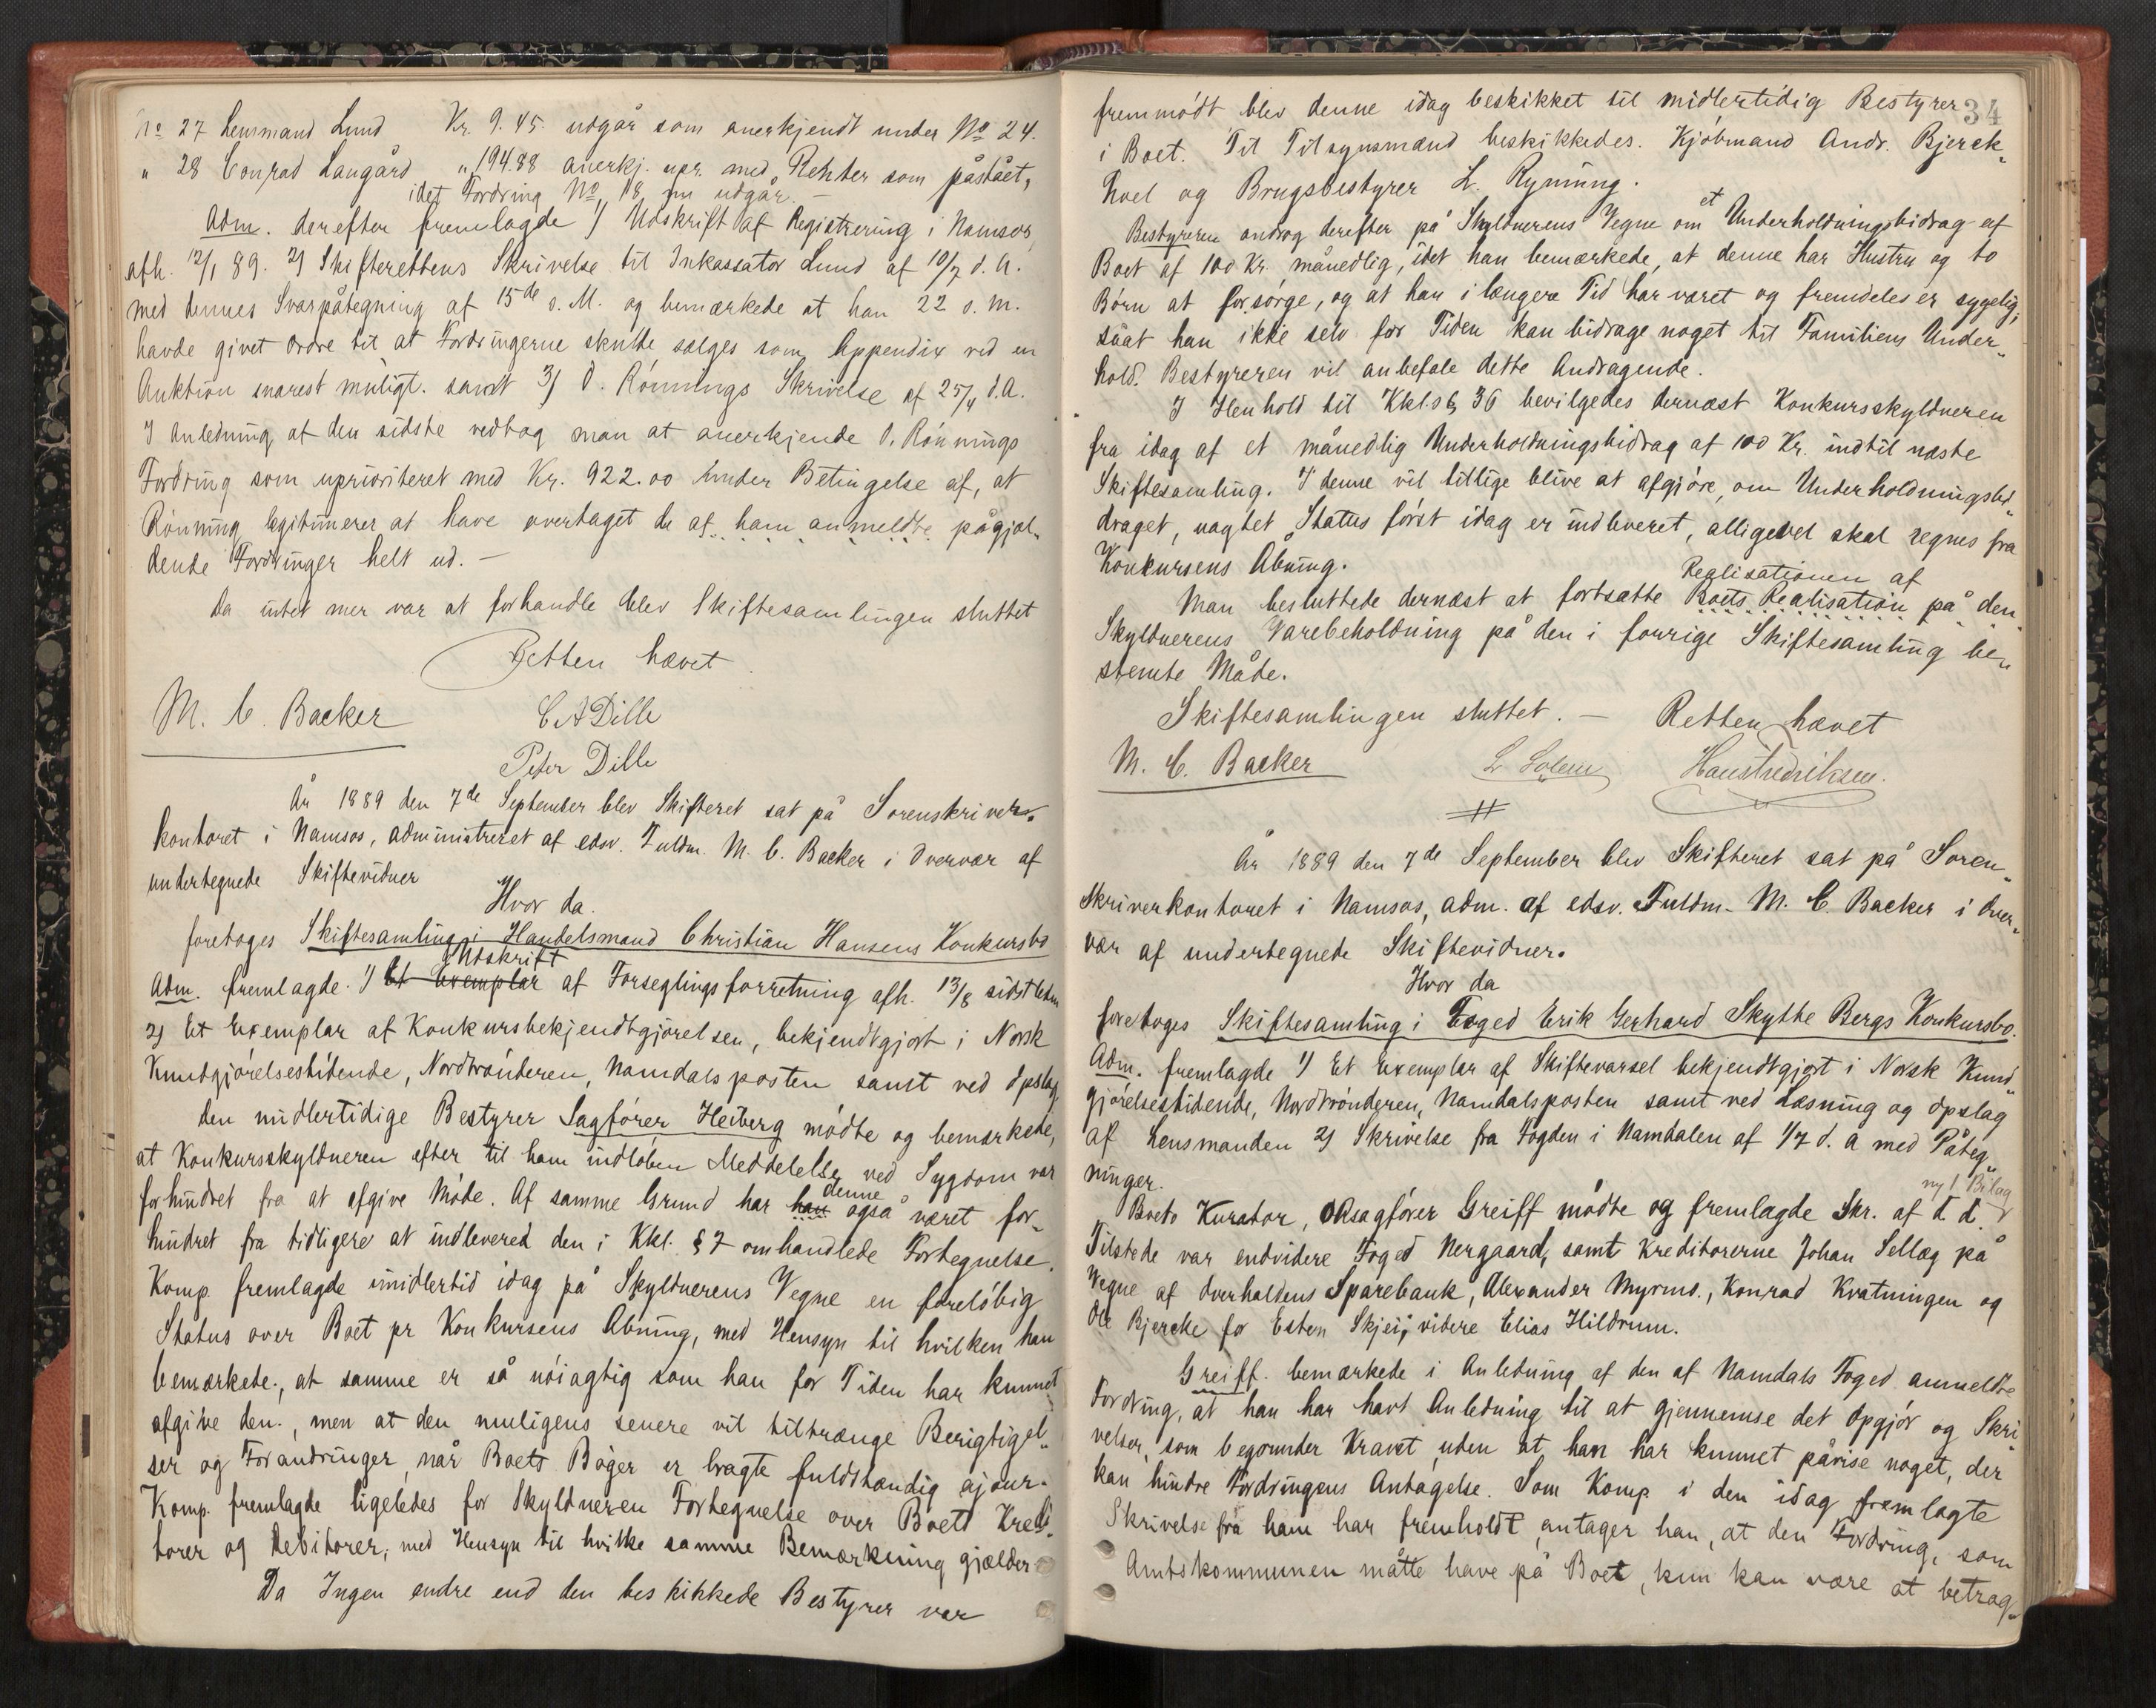 No 27 Lensmand Lund Kr. 9.45. udgår som anerkjendt under No 24.
" 28 Conrad Langård " 194.88 anerkj. upr. med Renter som påstået,
idet Fordring No 18 nu udgår. —
Adm. derefter fremlagde 1) Udskrift af Registrering i Namsos
afh. 12/1 89. 2) Skifterettens Skrivelse til Inkassator Lund af 10/7 d. A.
med dennes Svarpåtegning af 15de s. M. og bemærkede at han 22 s. m.
havde givet Ordre til at Fordringerne skulde sælges som Appendix ved en
Auktion snarest muligt. samt 3) O. Rönnings Skrivelse af 25/4 d. A.
I Anledning af den sidste vedtog man at anerkjende O. Rönnings
Fordring som uprioriteret med Kr. 922.00 under Betingelse af, at
Rönning legitimerer at have overtaget de af ham anmeldte pågjæl„
dende Fordringer helt ud. —
Da intet mer var at forhandle blev Skiftesamlingen sluttet
Retten hævet.
M. C. Backer C A Dille
Peter Dille
År 1889 den 7de September blev Skifteret sat på Sorenskriver„
kontoret i Namsos, administreret af edsv. Fuldm. M. C. Backer i Overvær af
undertegnede Skiftevidner
Hvor da.
foretoges Skiftesamling i Handelsmand Christian Hansens Konkursbo
Udskrift
Adm. fremlagde. 1) Et Exemplar af Forseglingsforretning afh. 13/8 sidstleden
2) Et Exemplar af Konkursbekjendtgjörelsen, bekjendtgjort i Norsk
Kundgjörelsestidende, Nordtrönderen, Namdalsposten samt ved Opslag.
Den midlertidige Bestyrer Sagförer Heiberg mödte og bemærkede,
at Konkursskyldneren efter til ham indlöben Meddelelse ved Sygdom var
denne
forhindret fra at afgive Möde. Af samme Grund har han også været for„
hindret fra tidligere at indlevered den i Kkl. § 7 omhandlede Fortegnelse.
Komp. fremlagde imidlertid idag på Skyldnerens Vegne en forelöbig
Status over Boet pr Konkursens Åbning, med Hensyn til hvilken han
bemærkede, at samme er så nöiagtig som han for Tiden har kunnet
afgive den, men at den muligens senere vil tiltrænge Berigtigel„
ser og Forandringer, når Boets Böger er bragte fuldstændig ajour.
Komp. fremlagde ligeledes for Skyldneren Fortegnelse over Boets Kredi„
torer og Debitorer, med Hensyn til hvilke samme Bemærkning gjælder
Da Ingen andre end den beskikkede Bestyrer var
34
fremmödt blev denne idag beskikket til midlertidig Bestyrer
i Boet. Til Tilsynsmænd beskikkedes. Kjöbmand Andr. Bjerck„
hoel og Brugsbestyrer L. Ryning.
et
Bestyreren androg derefter på Skyldnerens Vegne om Underholdningsbidrag af
Boet af 100 Kr. månedlig, idet han bemærkede, at denne har Hustru og to
Börn at forsörge, og at han i længere Tid har været og fremdeles er sygelig,
såat han ikke selv for Tiden kan bidrage noget til Familiens Under„
hold. Bestyreren vil anbefale dette Andragende.
I Henhold til Kkl.s § 36 bevilgedes dernæst Konkursskyldneren
fra idag af et månedlig Underholdningsbidrag af 100 Kr. indtil næste
Skiftesamling. I denne vil tillige blive at afgjöre, om Underholdningsbi„
draget, uagtet Status först idag er indleveret, alligevel skal regnes fra
Konkursens Åbning.
Realisationen af
Man besluttede dernæst at fortsætte Boets Realisation på den
Skyldnerens Varebeholdning på den i forrige Skiftesamling be„
stemte Måde.
Skiftesamlingen sluttet. — Retten hævet
M. C. Backer L Solem Hans Fredriksen.
År 1889 den 7de September blev Skifteret sat på Soren„
skriverkontoret i Namsos, adm. af edsv. Fuldm. M. C. Backer i Over„
vær af undertegnede Skiftevidner.
Hvor da
foretoges Skiftesamling i Foged Erik Gerhard Skytte Bergs Konkursbo.
Adm. fremlagde 1) Et Exemplar af Skiftevarsel bekjendtgjort i Norsk Kund„
gjörelsestidende, Nordtrönderen, Namdalsposten samt ved Læsning og Opslag
af Lensmanden 2) Skrivelse fra Fogden i Namdalen af 1/7 d. A med Påteg„
ninger.
ny 1 Bilag
Boets Kurator, ORsagförer Greiff mödte og fremlagde Skr. af d. d.
Tilstede var endvidere Foged Nergaard, samt Kreditorerne Johan Sellæg på
Vegne af Overhaldens Sparebank, Alexander Myrmo., Konrad Kvatningen og
Ole Bjercke for Esten Skjei; videre Elias Hildrum.
Greiff. bemærkede i Anledning af den af Namdals Foged anmeldte
Fordring, at han har havt Anledning til at gjennemse det Opgjör og Skri„
velser, som begrunder Kravet uden at han har kunnet påvise noget, der
kan hindre Fordringens Antagelse. Som Komp. i den idag fremlagte
Skrivelse fra ham har fremholdt antager han, at den Fordring, som
Amtskommunen måtte have på Boet, kun kan være at betrag„